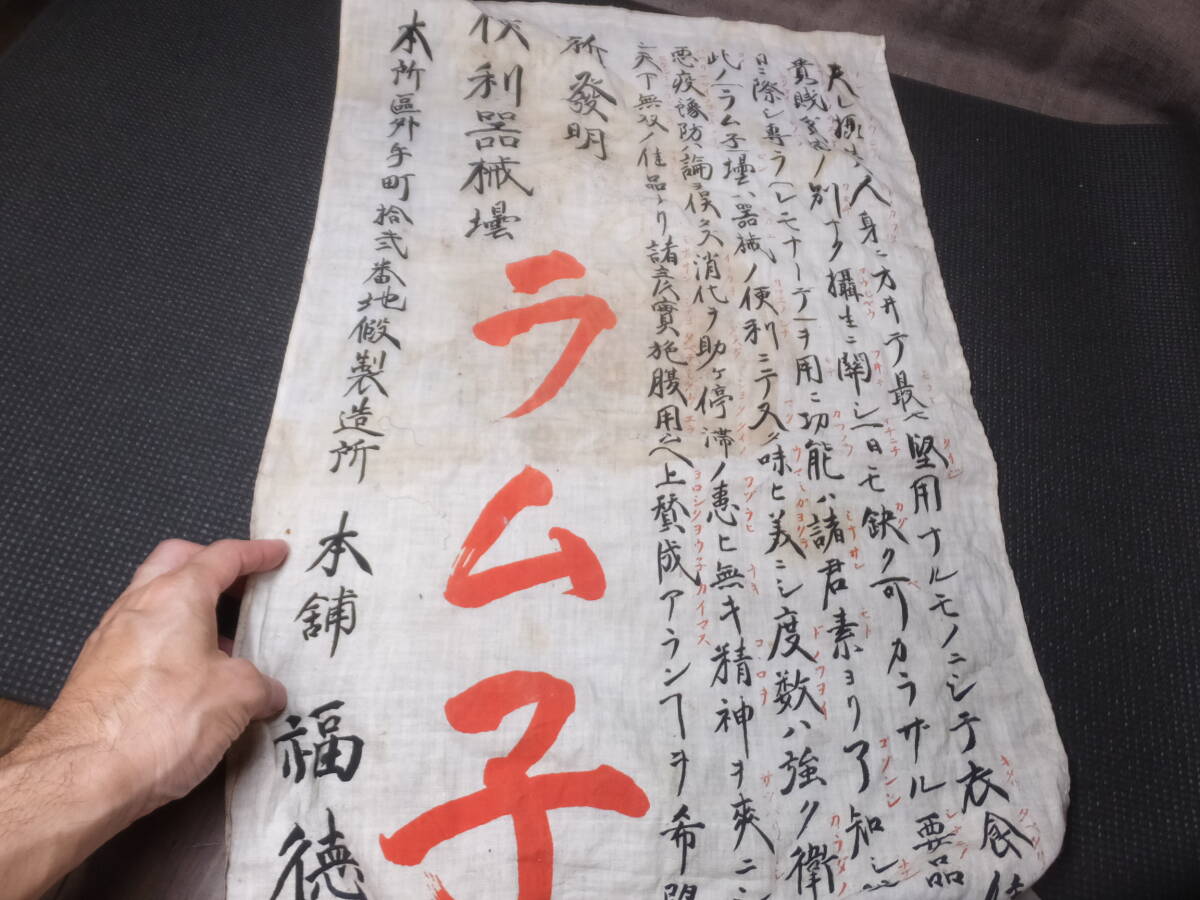 夫レ 人身ニ方弁テ最モ堅用ナルモノニシテ衣食住
貴賤 ノ別ナク攝生ニ關シ一日モ鉄ク可カラザル要品
日ニ際シ專ラレモナーデヲ用ニ功能ハ諸君素ヨリ了知シ
此ノラム子壜ハ器械ノ便利ニテ又タ味ヒ美ニシ度数ハ強ク衛
悪疫豫防ハ論ヲ俟タス消化ヲ助ケ停滞ノ患ヒ無キ精神ヲ爽ニシ
天下無双ノ佳品ナリ諸 實施 用 上賛成アランヿヲ希望
新發明
伏利器械壜
ラム子
本所區外手町拾弐番地假製造所
本舗 福徳